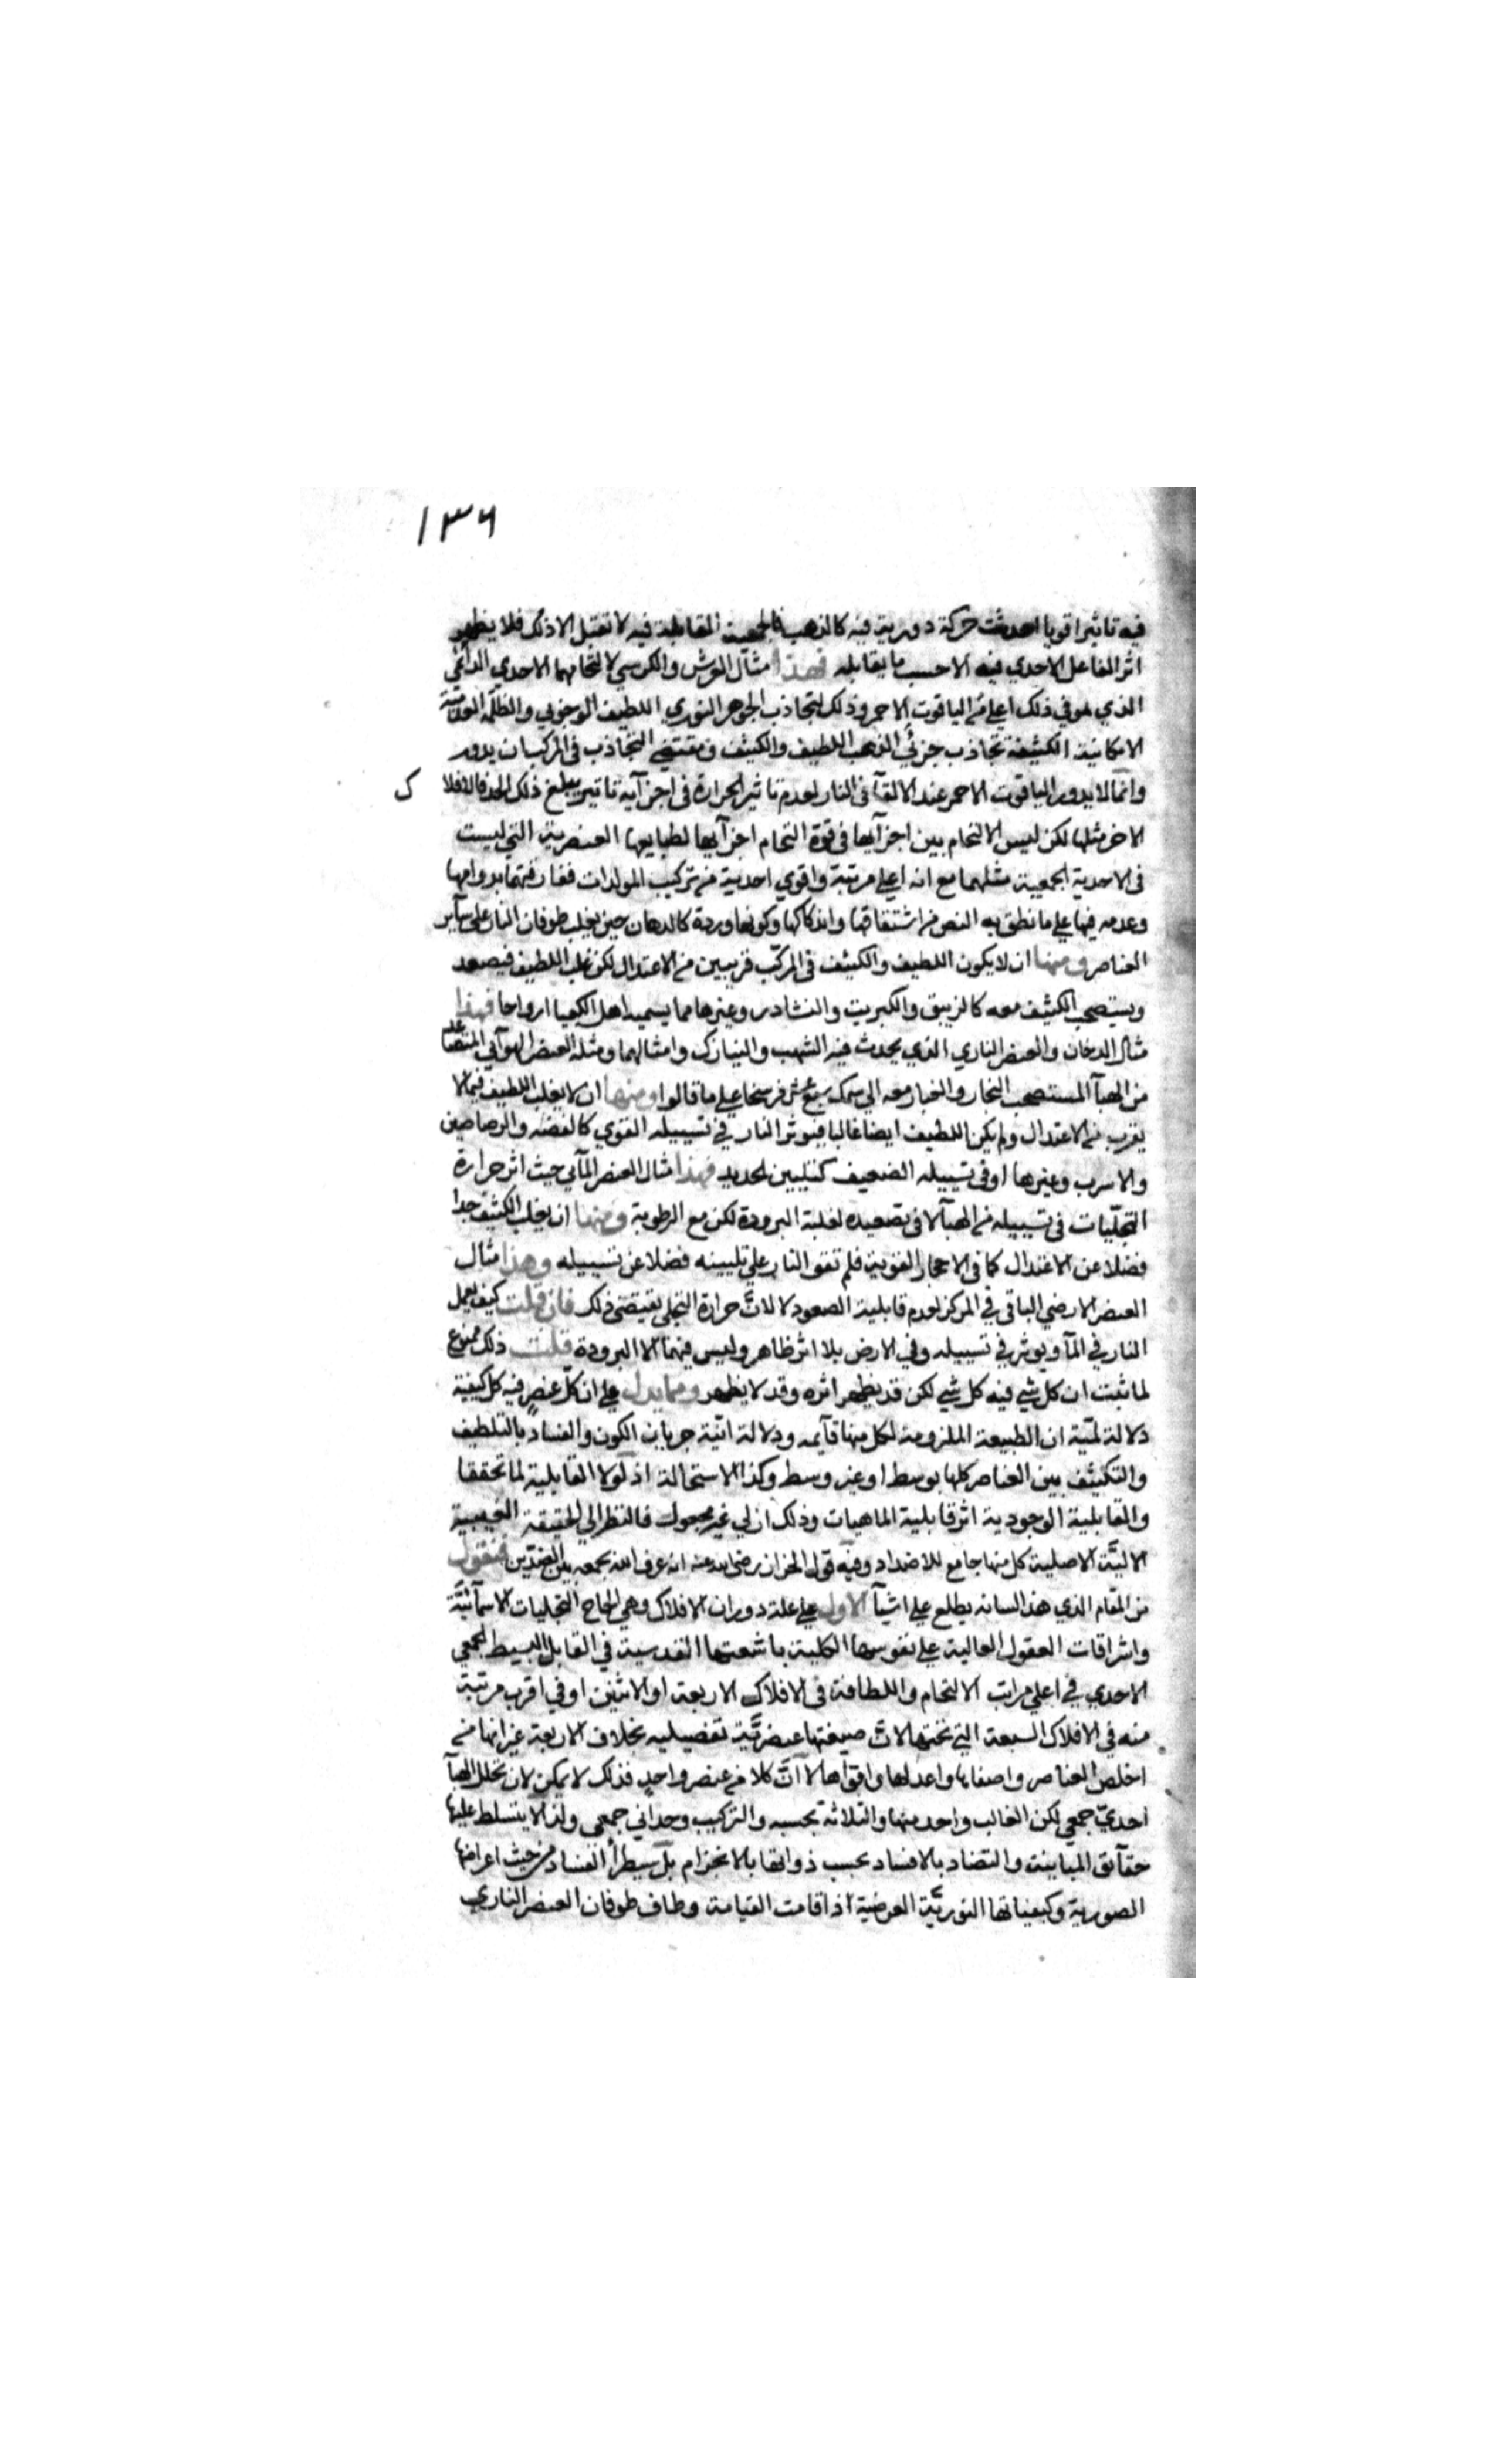 ١٣٦
فيه تاثيرا قويا احدثت حركة دورية فيه كالذهب فالجمعية المقابلة فيه لا تقبل الا ذلك فلا يظهر
اثر الفاعل الاحدي فيه الا حسب ما يقابله فهذا مثال العرش والكرسي لالتحامهما الاحدي الدائمي
الذي هو في ذلك اعلى من الياقوت الاحمر وذلك لتجاذب الجوهر النوري اللطيف الوجوبي والظلمة العدمية
الامكانية الكثيفة تجاذب جزئي الذهب اللطيف والكثيف ومقتضى التجاذب في المركب ان يدور
وانما لا يدور الياقوت الاحمر عند الالقآ في النار لعدم تاثير الحرارة في اجزآيه تاثيرا يبلغ ذلك الحد فالافلا ك
الاخر مثلها لكن ليس الالتحام بين اجزآيها في قوة التحام اجزآيها لطبايعها العنصرية التي ليست
في الاحدية الجمعية مثلهما مع انه اعلى مرتبة واقوي احدية من تركيب المولدات ففارقتهما بدوامها
وعدمه فيها على ما نطق به النص من اشتقاقها واندكاكها وكونها وردة كالدهان حين يغلب طوفان النار على سآير
العناصر ومنها ان لا يكون اللطيف والكثيف في المركب قريبين من الاعتدال لكن غلب اللطيف فيصعد
ويستصحب الكثيف معه كالزيبق والكبريت والنشادر وغيرها مما يسميه اهل الكيميا ارواحا فهذا
مثال الدخان والعنصر الناري الذي يحدث فيه الشهب والنيازك وامثالهما ومثله العنصر الهوآئي
من الهبآ المستصحب البخار والغبار معه الى سمك سبع عشر فرسخا على ما قالوا ومنها ان لا يغلب اللطيف فيما لا
يقرب من الاعتدال ولم يكن اللطيف ايضا غالبا فيوثر النار في تسييله القوي كالفضة والرصاصين
والاسرب وغيرها او في تسييله الضعيف كتليين الحديد فهذا مثال العنصر المآئي حيث اثر حرارة
التجليات في تسييله من الهبآ لا في تصعيده لغلبة البرودة لكن مع الرطوبة ومنها ان يغلب الكثيف جدا
فضلا عن الاعتدال كما في الاحجار القوية فلم تقو النار على تليينه فضلا عن تسييله وهذا مثال
العنصر الارضي الباقي في المركز لعدم قابلية الصعود لا لان حرارة التجلي يقتضى ذلك فان قلت كيف يعمل
النار في المآ ويوثر في تسييله وفي الارض بلا اثر ظاهر وليس فيهما الا البرودة قلت ذلك ممنوع
لما ثبت ان كل شي فيه كل شي لكن قد يظهر اثره وقد لا يظهر ومما يدل على ان كل عنصر فيه كل كيفية
دلالة لمية ان الطبيعة الملزومة لكل منها قآيمه ودلالة انية جريان الكون والفساد بالتلطيف
والتكثيف بين العناصر كلها بوسط او غير وسط وكذا الاستحالة اذ لولا القابلية لما تحققا
والقابلية الوجودية اثر قابلية الماهيات وذلك ازلي غير مجعول فالنظر الي الحقيقة الغيبية
الالية الاصلية كل منها جامع للاضداد وفيه قول الخراز رضي الله عنه انه عرف الله بجمعه بين الضدين فنقول
من المقام الذي هذا لسانه يطلع على اشيآ الاول على علة دوران الافلاك وهي الحاح التجليات الاسمآئية
واشراقات العقول العالية على نفوسها الكلية باشعتها القدسية في القابل البسيط الجمعي
الاحدي في اعلى مراتب الالتحام واللطافة في الافلاك الاربعة او الاثنين او في اقرب مرتبة
منه في الافلاك السبعة التي تحتها لان صيغتها عنصرية تفصيليه بخلاف الاربعة غير انها من
اخلص العناصر واصفاها واعدلها واقواها لا ان كلا من عنصر واحد فذلك لا يمكن لان تخلل الهبآ
احدي جمعي لكن الغالب واحد منها والثلاثة بحسبه والتركيب وحداني جمعي ولذا لا يتسلط عليها
حقآيق المباينة والتضاد بالافساد بحسب ذواتها بالانخرام بل سيطرأ الفساد من حيث اعراضها
الصورية وكيفياتها النورية العرضية اذا قامت القيامة وطاف طوفان العنصر الناري